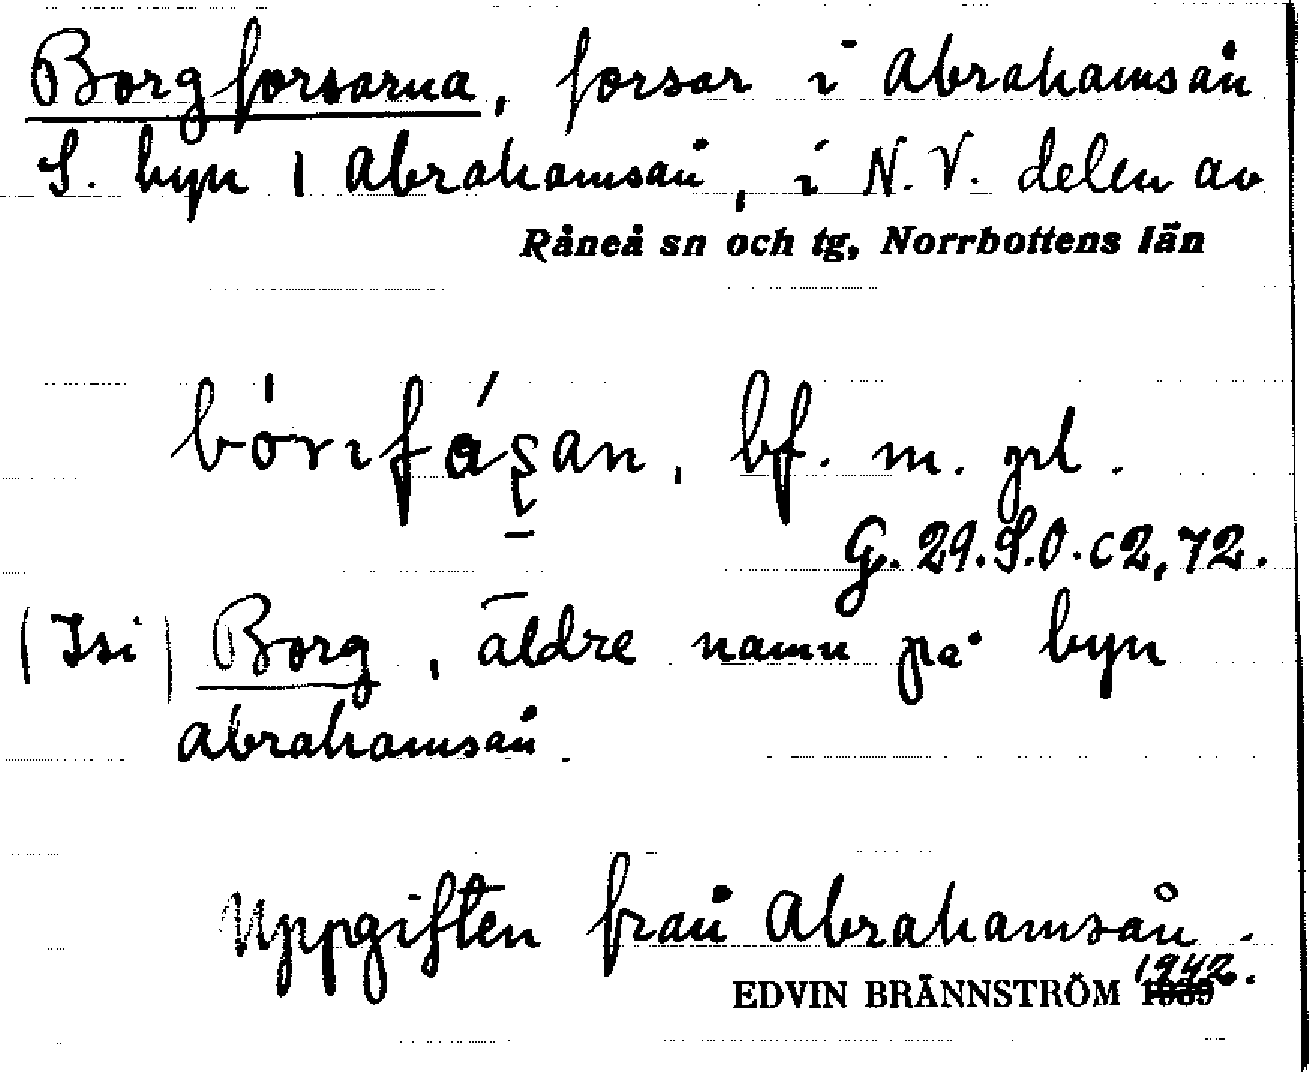 Borgforsarna, forsar i Abrahamsån
S. byn i Abrahamsån, i N.V. delen av
Råneå sn och tg, Norrbottens län
bf. m. pl.
G. 29. S.O. c2, 72.
(Isi) Borg, äldre namn på byn
Abrahamsån.
Uppgiften från Abrahamsån.
EDVIN BRÄNNSTRÖM 1942.